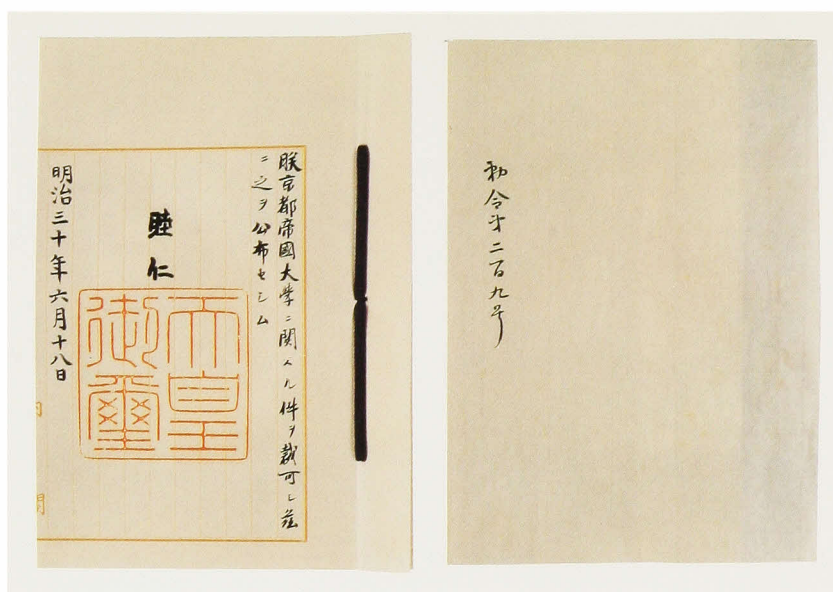 勅令第二百九号
朕京都帝國大學ニ関スル件ヲ裁可シ茲
ニ之ヲ公布セシム
睦仁
天皇
御璽
明治三十年六月十八日